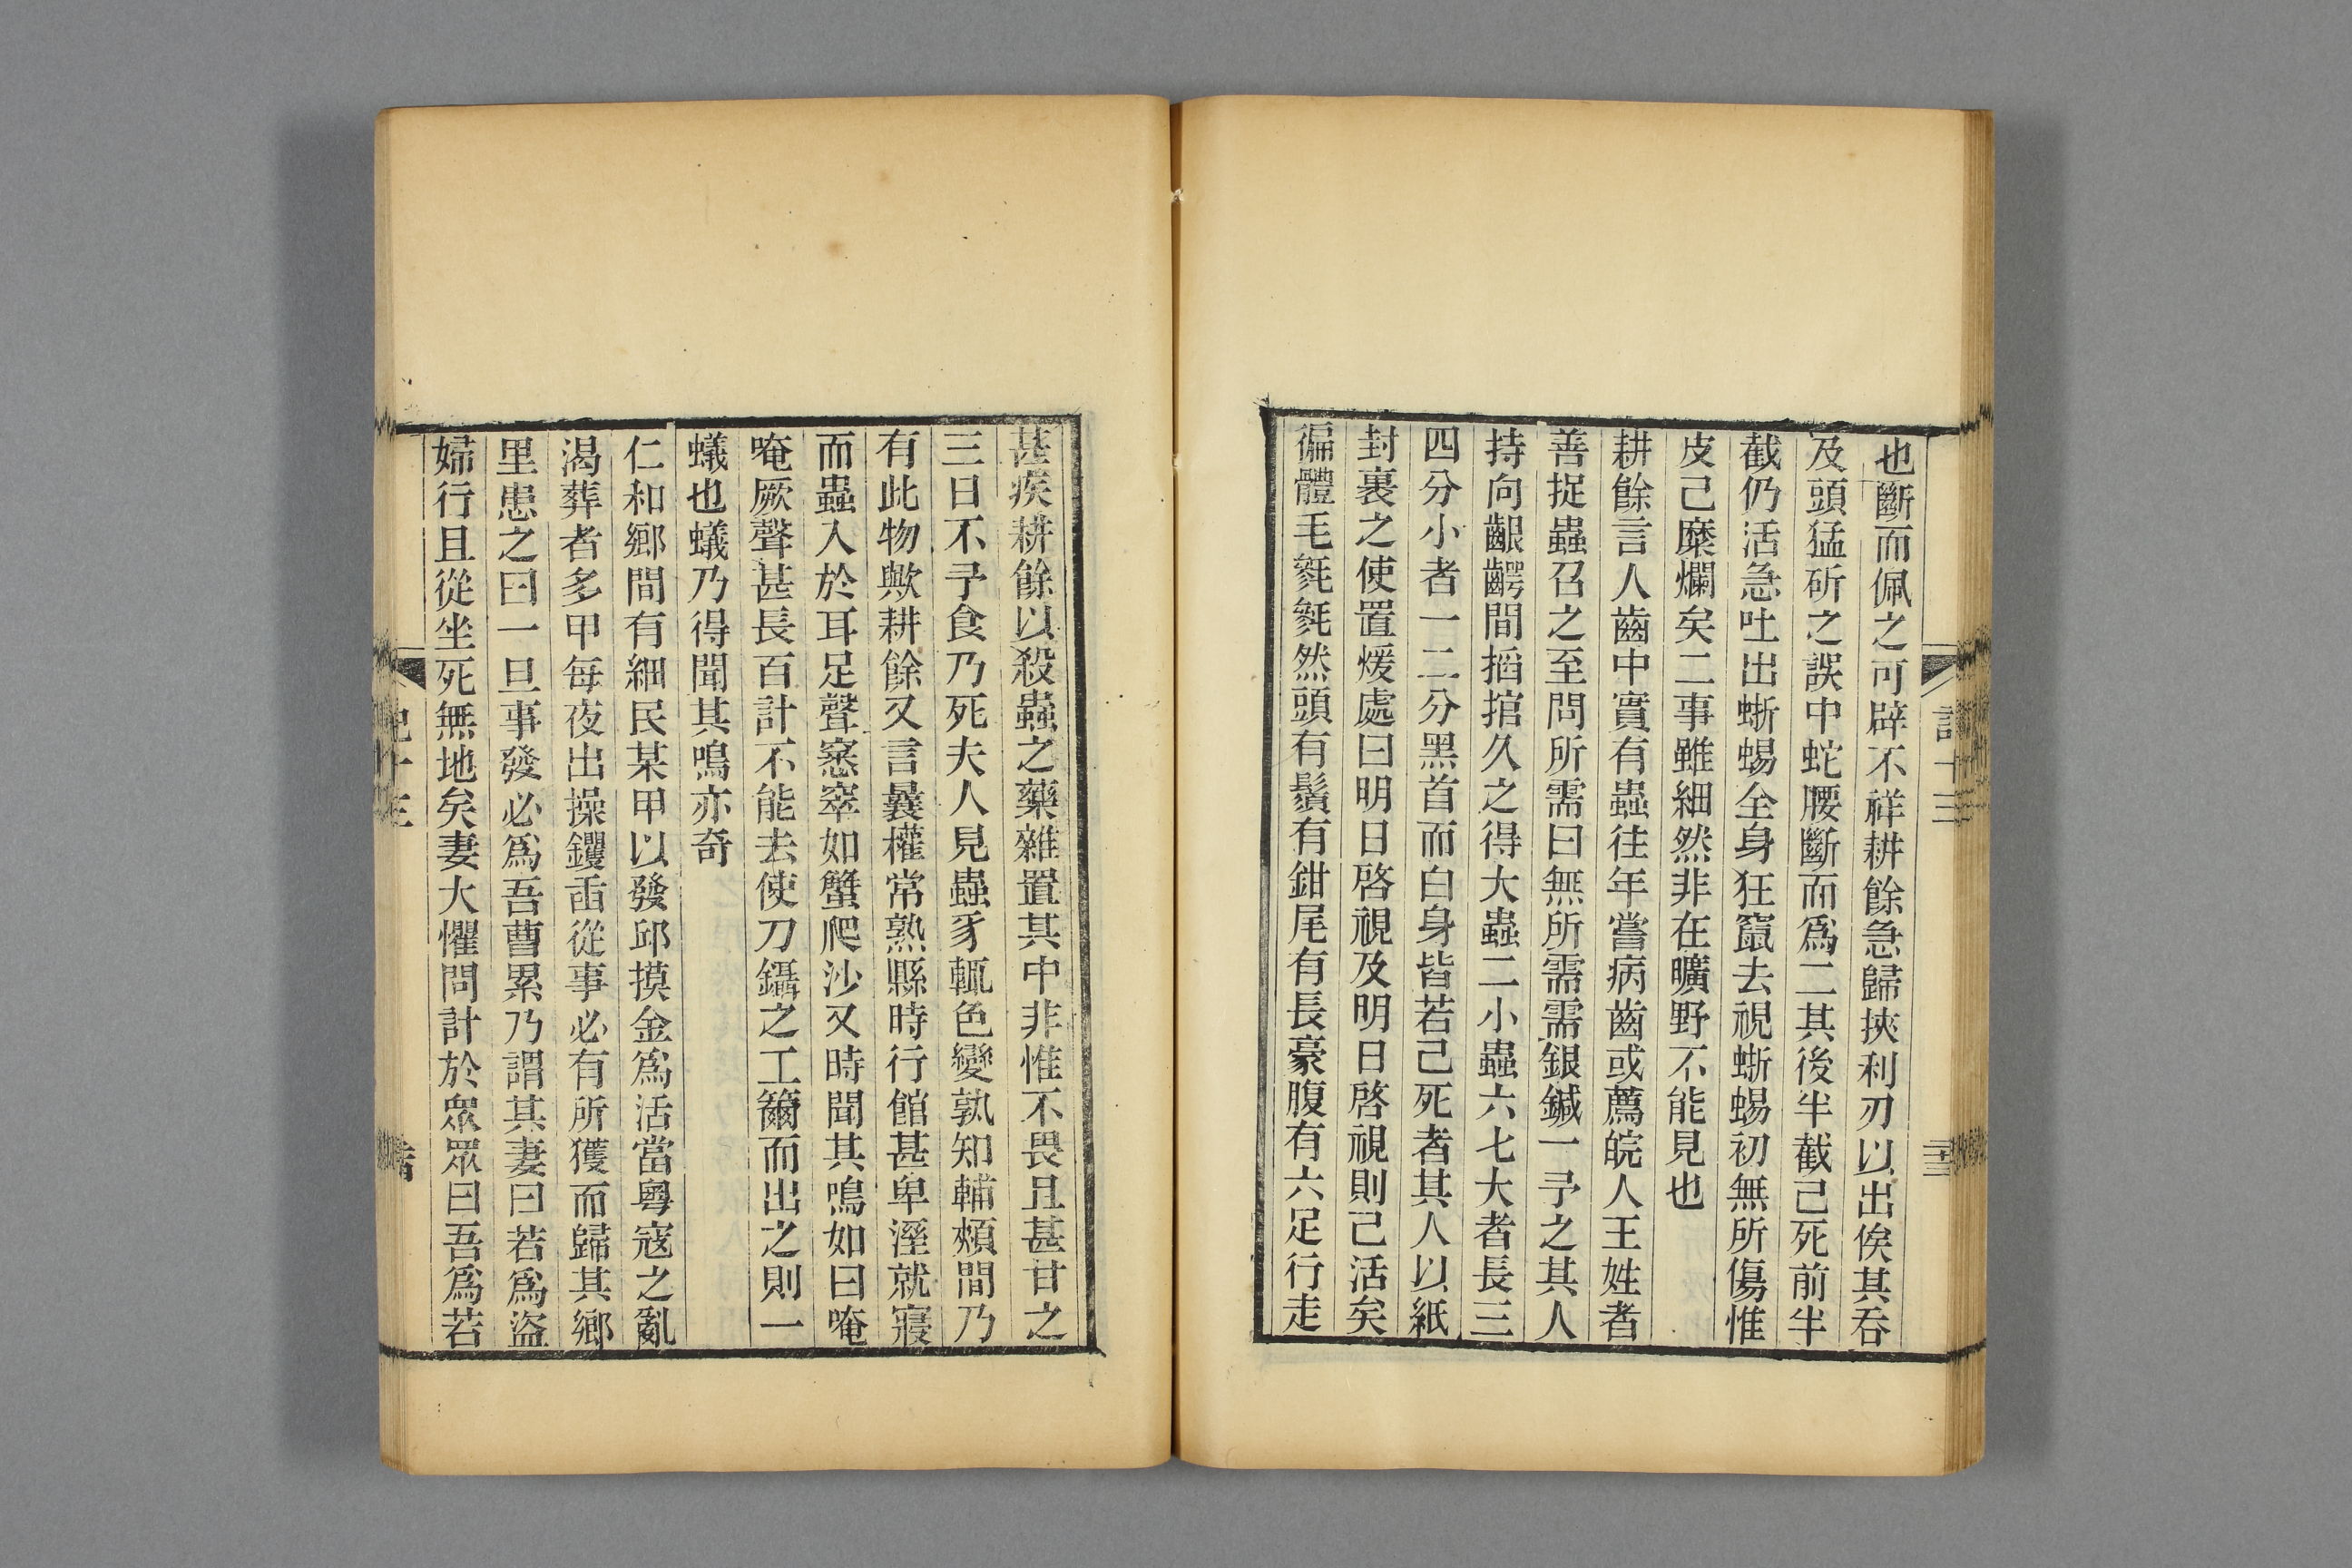 也斷而佩之可辟不祥耕餘急歸挾利刃以出俟其吞
及頭猛斫之誤中蛇腰斷而爲二其後半截已死前半
截仍活急吐出蜥蜴全身狂竄去視蜥蜴初無所傷惟
皮已糜爛矣二事雖細然非在曠野不能見也
耕餘言人齒中實有蟲往年嘗病齒或薦皖人王姓者
善捉蟲召之至問所需曰無所需需銀鍼一予之其人
持向齦齶間搯捾久之得大蟲二小蟲六七大者長三
四分小者一二分黑首而白身皆若已死者其人以紙
封裹之使置煖處曰明日啓視及明日啓視則已活矣
徧體毛毿毿然頭有鬚有鉗尾有長豪腹有六足行走
甚疾耕餘以殺蟲之藥雜置其中非惟不畏且甚甘之
三日不予食乃死夫人見蟲豸輒色變孰知輔頰間乃
有此物歟耕餘又言曩權常熟縣時行館甚卑溼就寢
而蟲入於耳足聲窸窣如蟹爬沙又時聞其鳴如曰唵
唵厥聲甚長百計不能去使刀鑷之工籋而出之則一
蟻也蟻乃得聞其鳴亦奇
仁和鄉間有細民某甲以發邱摸金爲活當粵寇之亂
渴葬者多甲每夜出操钁臿從事必有所獲而歸其鄉
里患之曰一旦事發必爲吾曹累乃謂其妻曰若爲盜
婦行且從坐死無地矣妻大懼問計於眾眾曰吾爲若